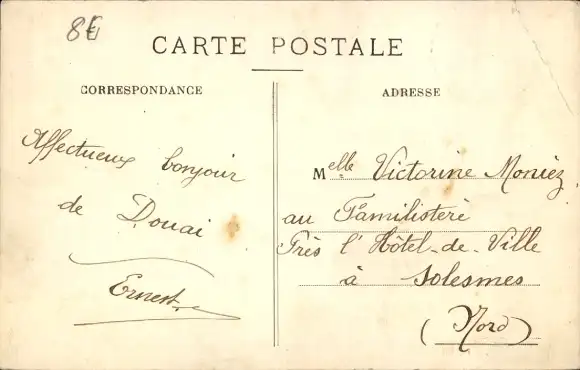 8€
CARTE POSTALE
CORRESPONDANCE
Affectueux bonjour
de Douai
Ernest
ADRESSE
Melle Victorine Moniez
au Familisteré
Près l'Hôtel-de-Ville
à Solesmes
(Nord)